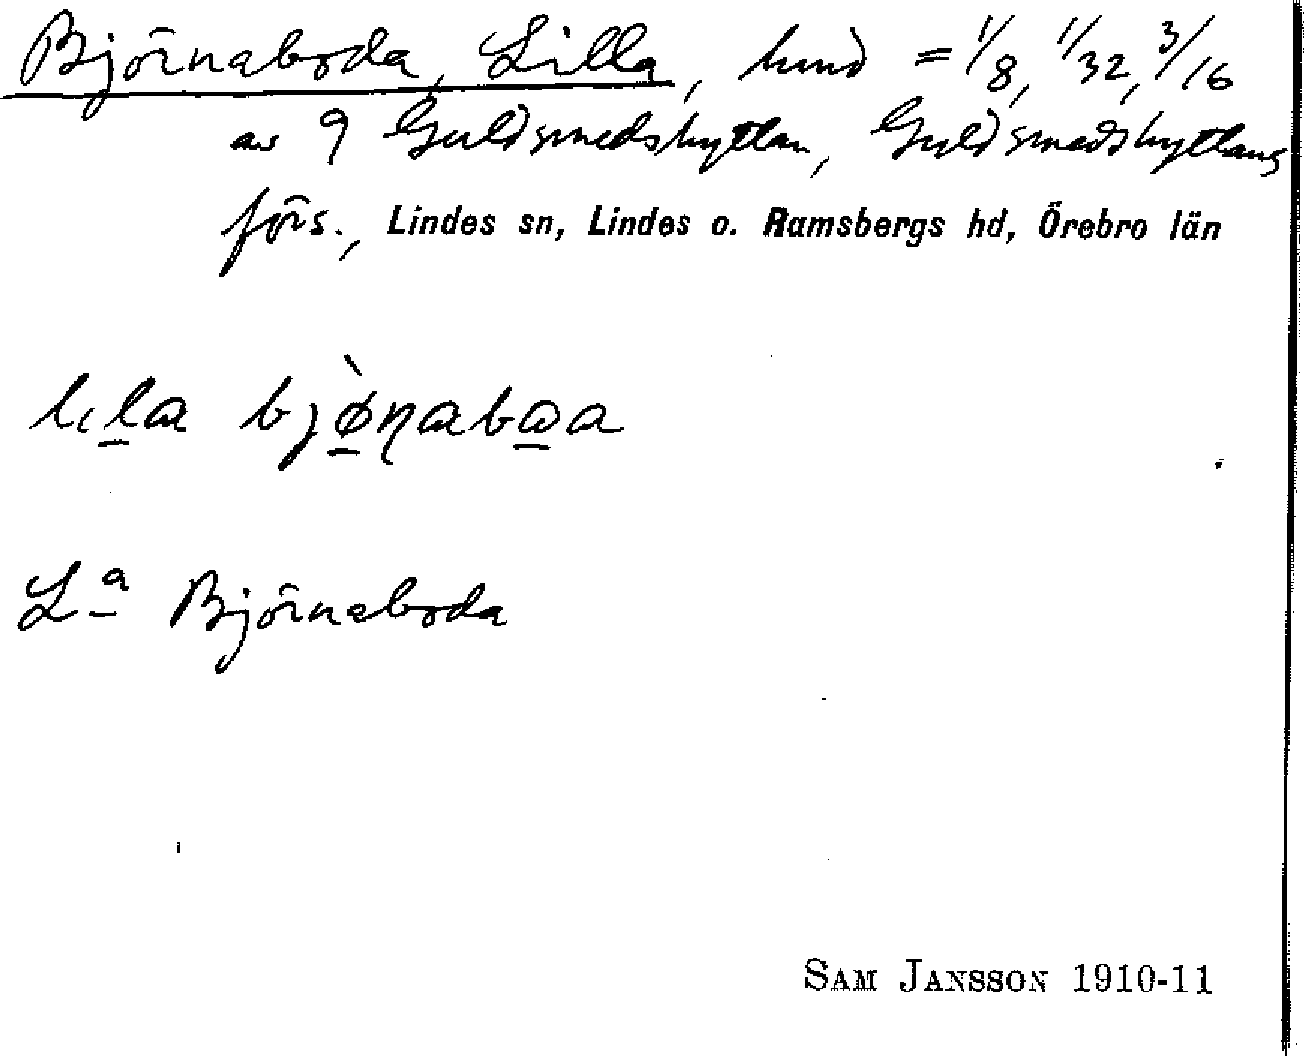 Björnaboda, Lilla, hmd = 1/8, 1/32, 3/16
av 9 Guldsmedshyttan, Guldsmedshyttans
förs., Lindes sn, Lindes o. Ramsbergs hd, Örebro län
lıla bjø̀ṇabωa
Lª Björnaboda
SAM JANSSON 1910-11